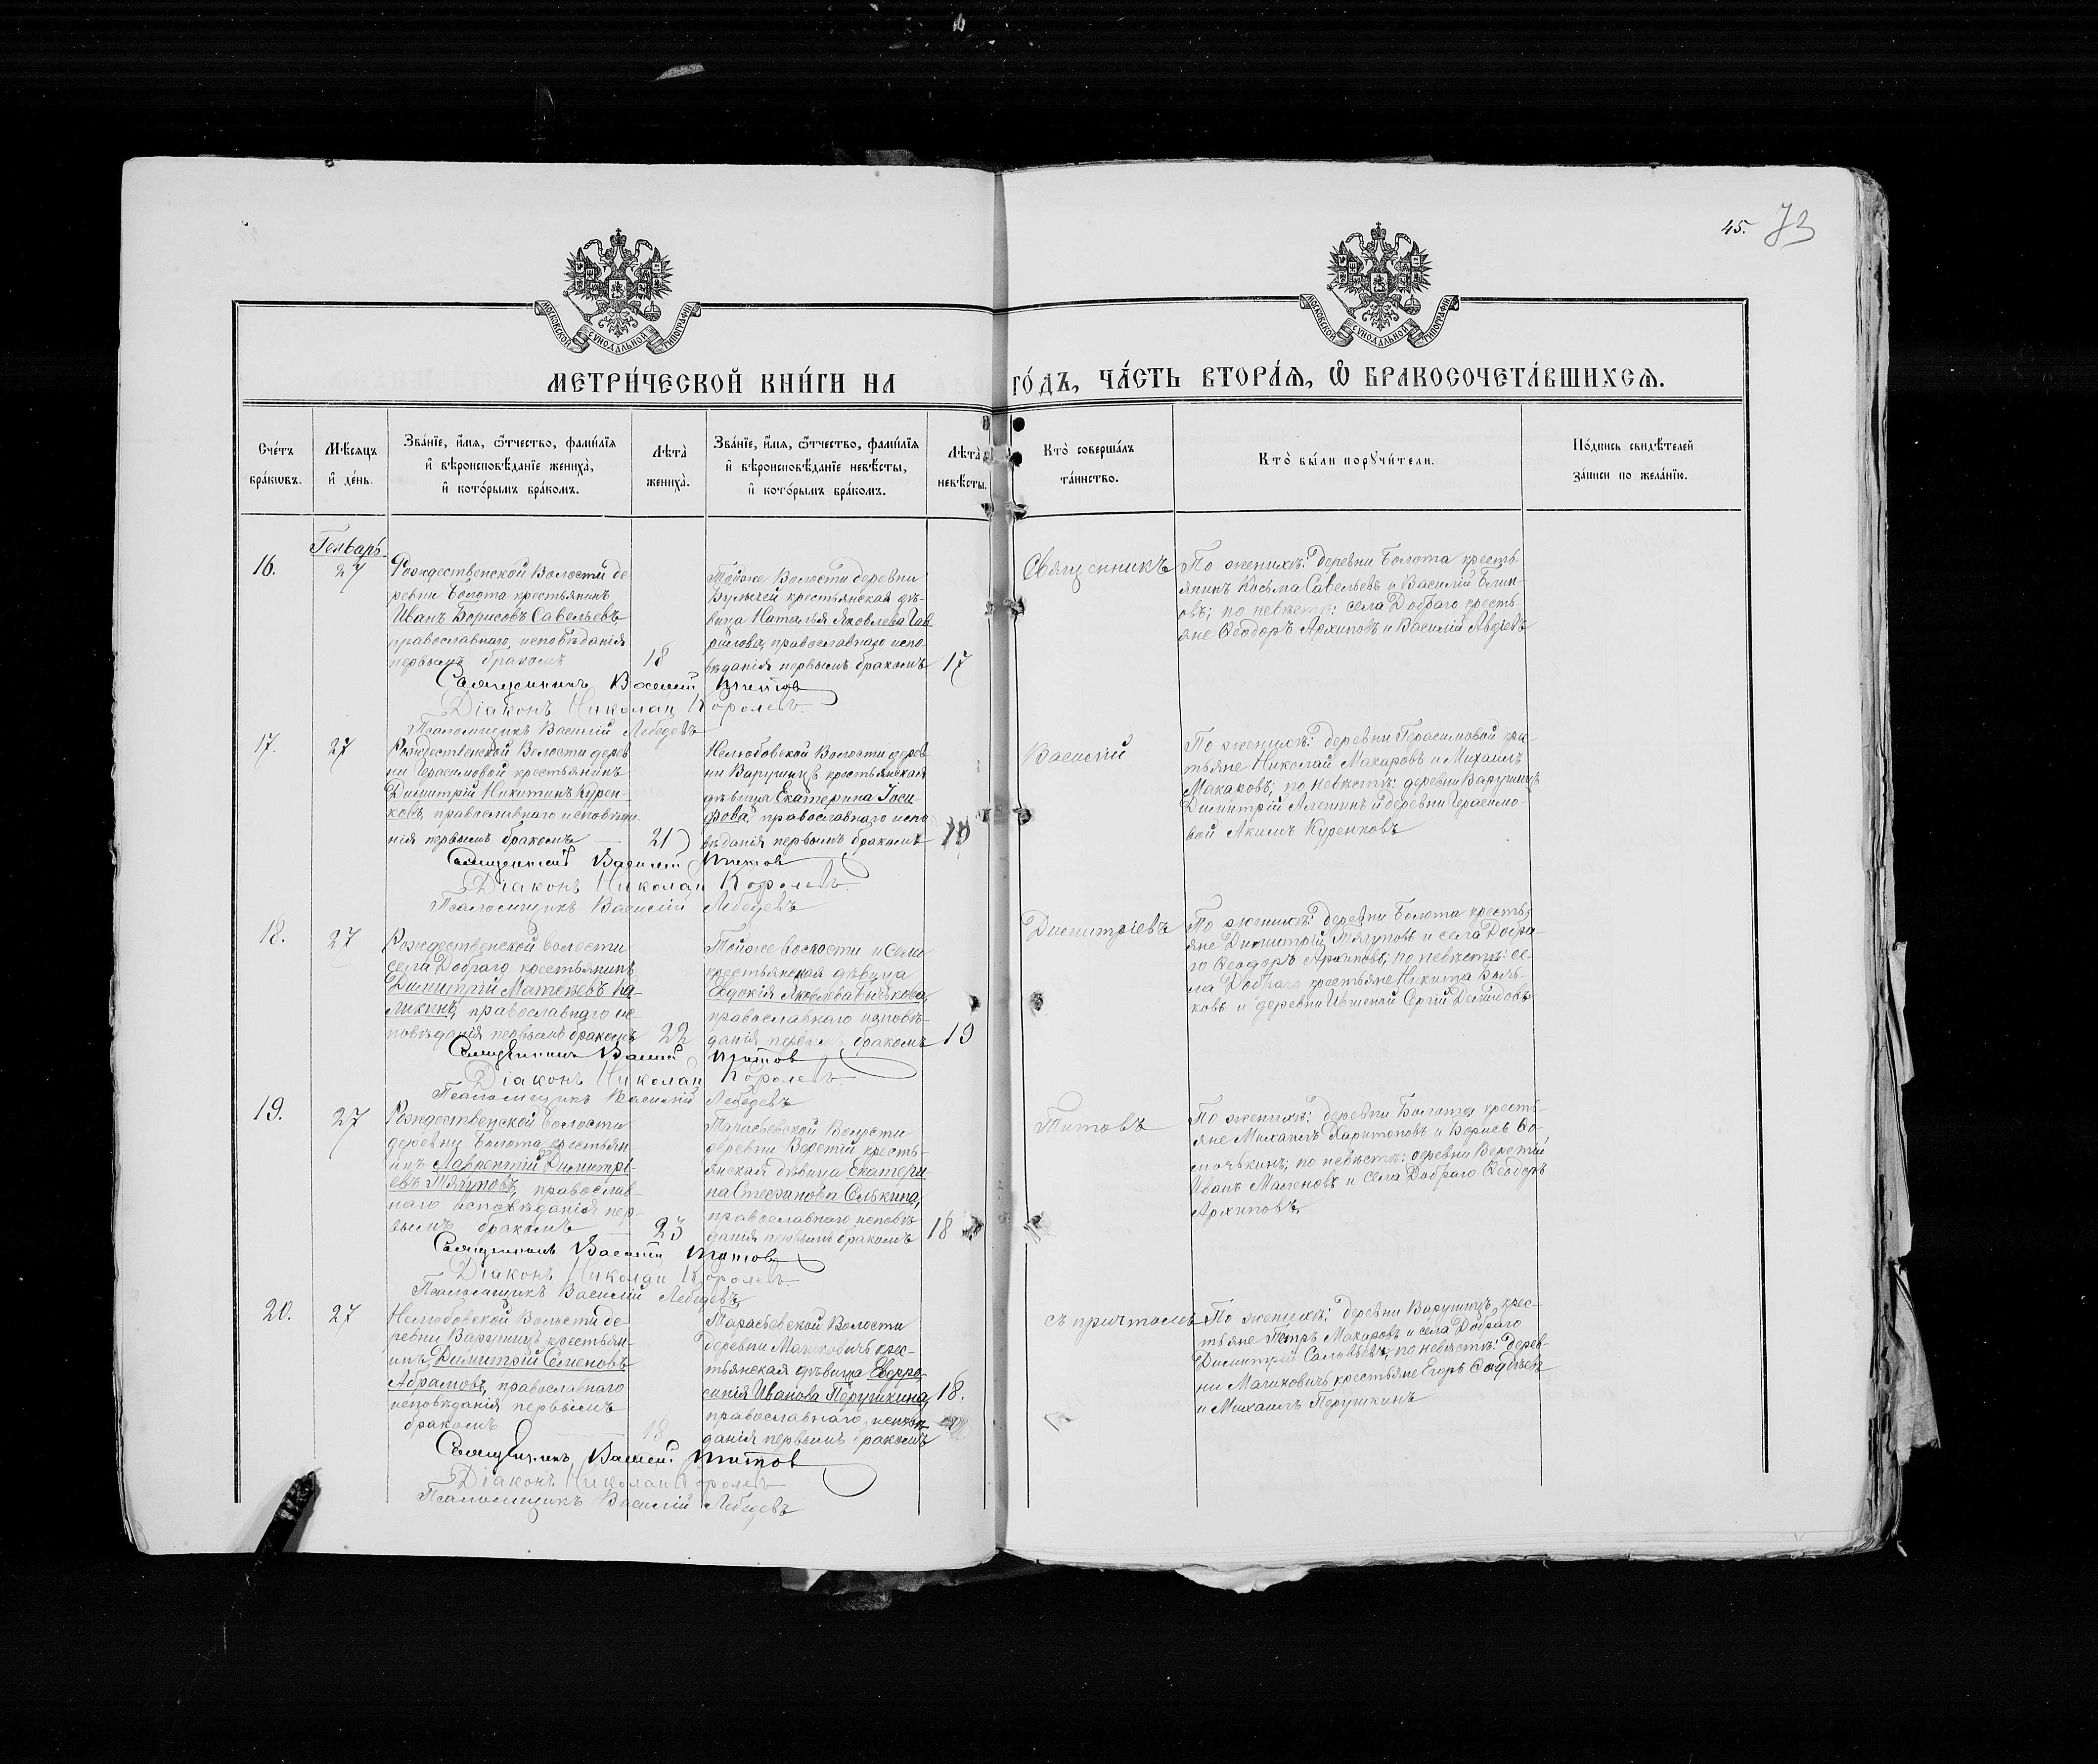 45. 73
МОСКОВСКОЙ СѴНОДАЛЬНОЙ ТИПОГРАФІИ
МОСКОВСКОЙ СѴНОДАЛЬНОЙ ТИПОГРАФІИ
МЕТРИ́ЧЕСКОЙ КНИ́ГИ НА ГО́ДЪ, ЧА́СТЬ ВТОРА́Ѧ, Ѽ БРАКОСОЧЕТА́ВШИХСѦ.
Сче́тъ
бра́кωвъ.
Мѣ́сяцъ
и҆ де́нь.
Зва́нїе, и҆́мя, ѻ҆́тчество, фами́лїя
и҆ вѣроисповѣ́данїе жениха̀,
и҆ кото́рымъ бра́комъ.
Лѣта̀
жениха̀.
Зва́нїе, и҆́мя, ѻ҆́тчество, фами́лїя
и҆ вѣроисповѣ́данїе невѣ́сты,
и҆ кото́рымъ бра́комъ.
Лѣта̀
невѣ́сты.
Кто̀ соверша́лъ
та́инство.
Кто̀ бы́ли порꙋчи́тели.
По́дпись свидѣ́телей
за́писи по жела́нїю.
Генварь
16.
27
Рождественской Волости де
ревни Болота крестьянинъ
Иванъ Борисовъ Савельевъ,
православнаго исповѣданія
первымъ бракомъ
18
Тойже Волости деревни
Булычей крестьянская дѣ-
вица Наталья Яковлева Гав
рилова, православнаго испо-
вѣданія первымъ бракомъ
17
Священникъ Василій Титовъ
Діаконъ Николай Королевъ.
Псаломщикъ Василій Лебедевъ
Священникъ
По женихѣ: деревни Болота кресть-
янинъ Косьма Савельевъ и Василій Блин-
овъ; по невѣстѣ: села Добраго кресть-
яне Ѳеодоръ Архиповъ и Василій Авдіевъ
17.
27
Рождественской Волости дерев
ни Герасимовой крестьянинъ
Димитрій Никитинъ Курен-
ковъ, православнаго исповѣда-
нія первымъ бракомъ
21
Нелюбовской Волости дерев
ни Варушицъ крестьянская
дѣвица Екатерина Іоси-
фова, православнаго испо
вѣданія первымъ бракомъ
Священникъ Василій Титовъ
Діаконъ Николай Королевъ.
Псаломщикъ Василій Лебедевъ
Василій
По женихѣ: деревни Герасимовой крес-
тьяне Николай Макаровъ и Михаилъ
Макаровъ; по невѣстѣ: деревни Варушицъ
Димитрій Алешинъ и деревни Герасимо-
вой Акимъ Куренковъ
18.
27
Рождественской волости
села Добраго крестьянинъ
Димитрій Матвеевъ Ка-
ликинъ, православнаго ис-
повѣданія первымъ бракомъ
22
Тойже волости и села
крестьянская дѣвица
Евдокія Яковлева Бычкова,
православнаго исповѣ-
данія первымъ бракомъ
19
Священникъ Василій Титовъ
Діаконъ Николай Королевъ.
Псаломщикъ Василій Лебедевъ
Димитріевъ
По женихѣ: деревни Болота кресть-
яне Димитрій Тягуновъ и села Добра-
го Ѳеодоръ Архиповъ; по невѣстѣ: се-
ла Добраго крестьяне Никита Быч-
ковъ и деревни Ившеной Сергій Демидовъ
19.
27
Рождественской волости
деревни Болота крестьян
инъ Лаврентій Димитрі-
евъ Тягуновъ, православ-
наго исповѣданія пер-
вымъ бракомъ
23
Тарасьевской Волости
деревни Веретій кресть-
янская дѣвица Екатери
на Стефанова Елькина,
православнаго исповѣ
данія первымъ бракомъ
18
Священникъ Василій Титовъ
Діаконъ Николай Королевъ.
Псаломщикъ Василій Лебедевъ
Титовъ
По женихѣ: деревни Болота кресть-
яне Михаилъ Харитоновъ и Борисъ Ѳо-
мочькинъ; по невѣстѣ: деревни Веретій
Иванъ Маленовъ и села Добраго Ѳеодоръ
Архиповъ.
20.
27
Нелюбовской Волости де-
ревни Варушицъ крестьян-
инъ Димитрій Семеновъ
Абрамовъ, православнаго
исповѣданія первымъ
бракомъ
18
Тарасьевской Волости
деревни Машковичь крес-
тьянская дѣвица Евфро-
синія Иванова Перушкина,
православнаго исповѣ-
данія первымъ бракомъ
18.
Священникъ Василій Титовъ
Діаконъ Николай Королевъ
Псаломщикъ Василій Лебедевъ
съ причтомъ
По женихѣ: деревни Варушицъ крес-
тьяне Петръ Макаровъ и села Добраго
Димитрій Соловьевъ; по невѣстѣ: дерев-
ни Машковичь крестьяне Егоръ Ѳадѣевъ
и Михаилъ Перушкинъ